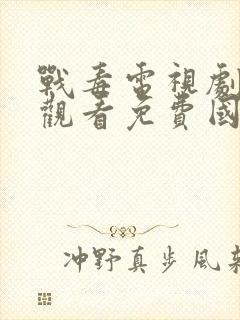 戰毒電視劇
觀看免費國
冲野真步風